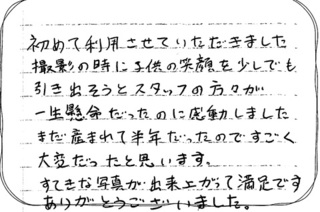 初めて利用させていただきました
撮影の時に子供の笑顔を少しでも
引き出そうとスタッフの方々が
一生懸命だったのに感動しました
まだ産まれて半年だったのですごく
大変だったと思います。
すてきな写真が出来上がって満足です
ありがとうございました。